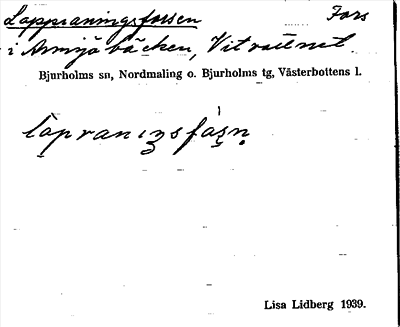 Lappraningsforsen Fors
i Armsjöbäcken, Vitvattnet.
Bjurholms sn, Nordmaling o. Bjurholms tg, Västerbottens l.
Lisa Lidberg 1939.